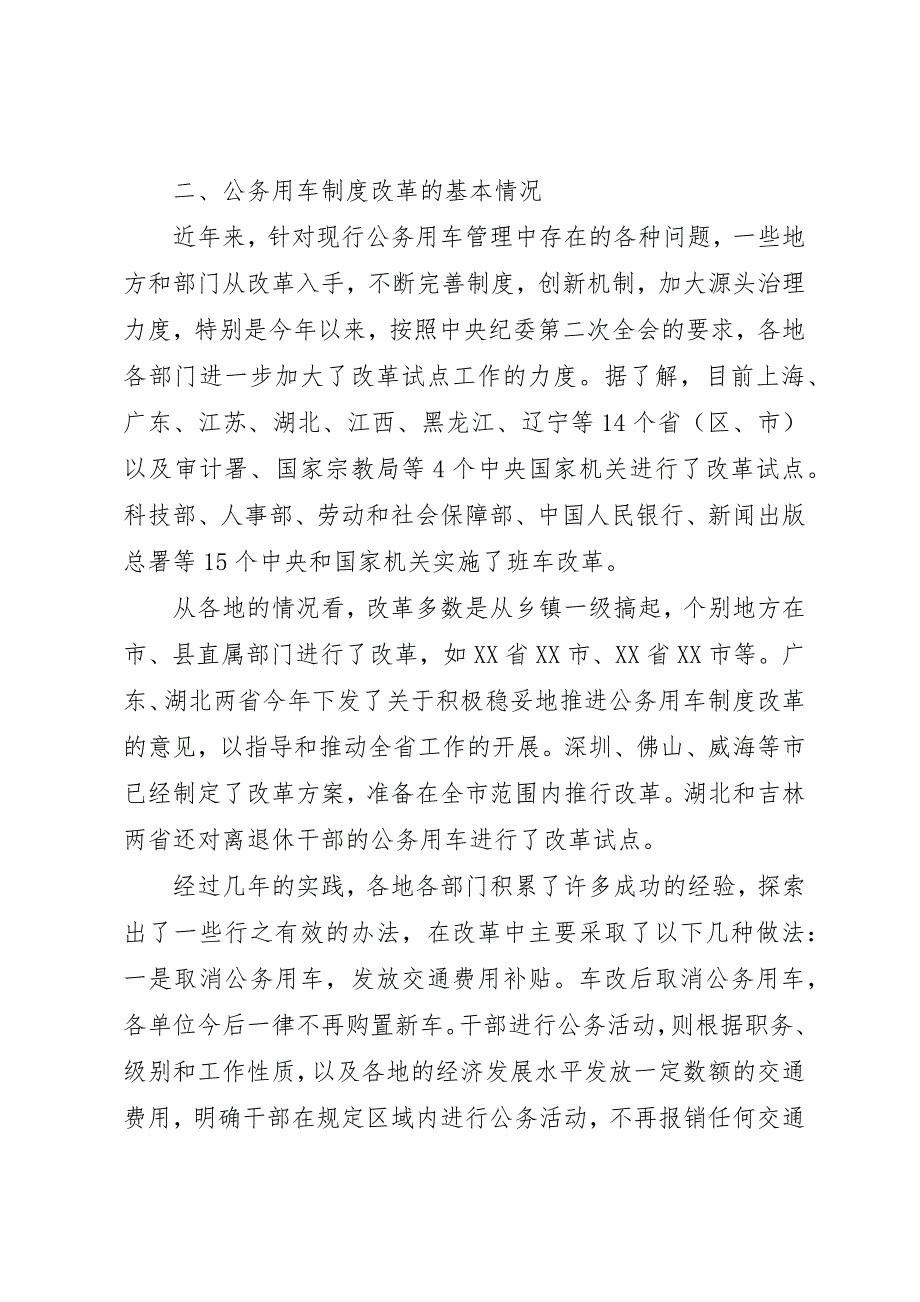 二、公务用车制度改革的基本情况
近年来，针对现行公务用车管理中存在的各种问题，一些地
方和部门从改革入手，不断完善制度，创新机制，加大源头治理
力度，特别是今年以来，按照中央纪委第二次全会的要求，各地
各部门进一步加大了改革试点工作的力度。据了解，目前上海、
广东、江苏、湖北、江西、黑龙江、辽宁等 14 个省（区、市）
以及审计署、国家宗教局等 4 个中央国家机关进行了改革试点。
科技部、人事部、劳动和社会保障部、中国人民银行、新闻出版
总署等 15 个中央和国家机关实施了班车改革。
从各地的情况看，改革多数是从乡镇一级搞起，个别地方在
市、县直属部门进行了改革，如 XX 省 XX 市、XX 省 XX 市等。广
东、湖北两省今年下发了关于积极稳妥地推进公务用车制度改革
的意见，以指导和推动全省工作的开展。深圳、佛山、威海等市
已经制定了改革方案，准备在全市范围内推行改革。湖北和吉林
两省还对离退休干部的公务用车进行了改革试点。
经过几年的实践，各地各部门积累了许多成功的经验，探索
出了一些行之有效的办法，在改革中主要采取了以下几种做法：
一是取消公务用车，发放交通费用补贴。车改后取消公务用车，
各单位今后一律不再购置新车。干部进行公务活动，则根据职务、
级别和工作性质，以及各地的经济发展水平发放一定数额的交通
费用，明确干部在规定区域内进行公务活动，不再报销任何交通